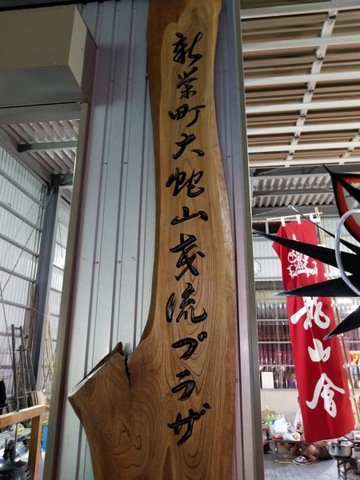 新栄町大蛇山交流プラザ
龍山會